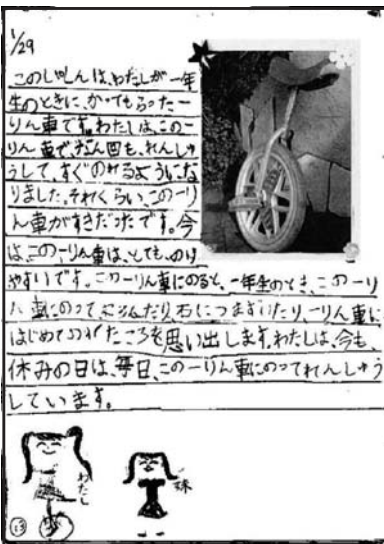 1/29
このしゃしんは、わたしが一年
生のときに、かってもらった一
りん車です。わたしは、この一
りん車で、なん回も、れんしゅ
うして、すぐのれるようにな
りました。それくらい、この一り
ん車がすきだったです。今
は、この一りん車は、とても、のり
やすいです。この一りん車にのると、一年生のとき、この一り
ん車にのって、ころんだり、石につまずいたり、一りん車に
はじめてのれたころを思い出します。わたしは、今も、
休みの日は、毎日、この一りん車にのってれんしゅう
しています。
わたし
妹
13